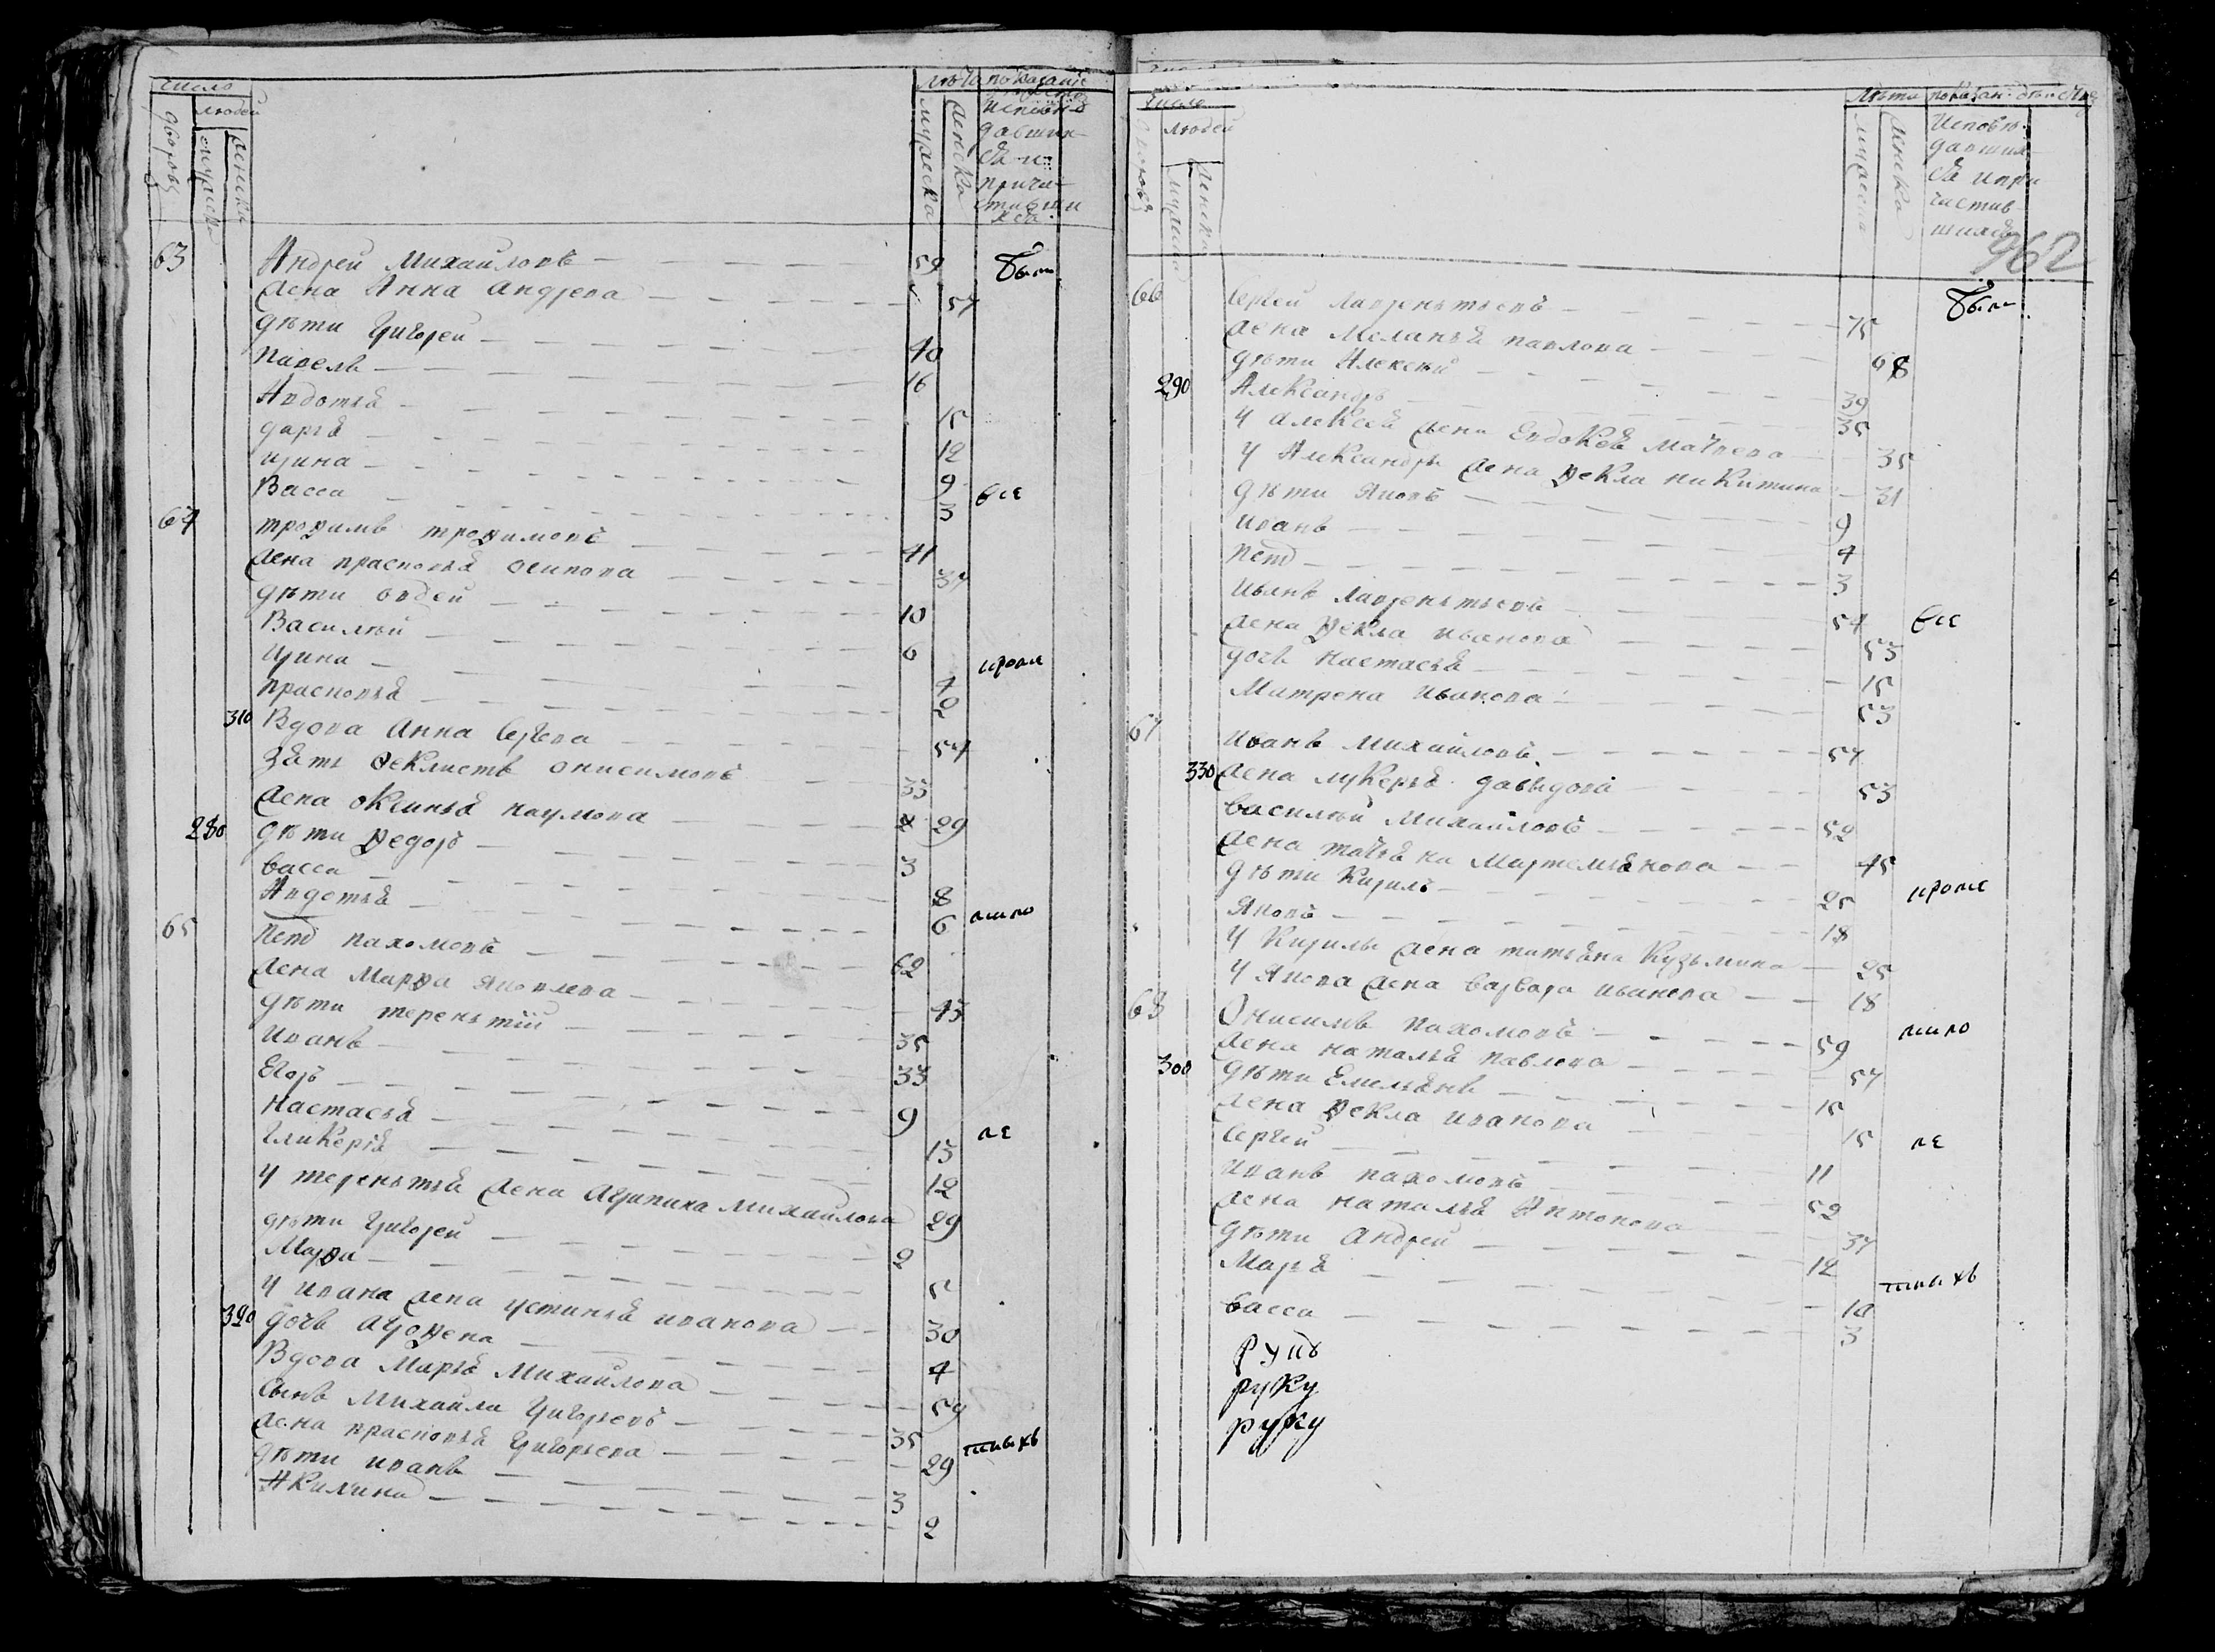 число
людей
дворовъ
мужеска
женска
лѣта
показаніе
мужеска
женска
исповѣ
давших
ся и
причи
стивши
хся
63 Андрей Михайловъ 59 были
жена Анна Андрева 57
дѣти Григорей 40
павелъ 16
Авдотья 15
дарья 12
ирина 9
Васса 3 все
64 трофимъ трофимовъ 41
жена прасковья осипова 37
дѣти овдей 10
Василѣй 6
ирина 4 кроме
прасковья 2
310 Вдова Анна Сергева 54
зять феклистъ онисимовъ 33
жена оксинья наумова 29
280 дѣти федоръ 3
васса 8
Авдотья 6
65 петр пахомовъ 62
жена Марфа яковлева 43
дѣти терентий 35
иванъ 33
Егоръ 9
настасья 13
гликерья 12
у терентья жена Агрипина Михайлова 29
дѣти григорей 2
Марфа 5
у ивана жена устинья иванова 30
320 дочь агрофена 4
Вдова Марья Михайлова 59
сынъ Михайла григорьевъ 35
жена прасковья григорьева 29
дѣти иванъ 3
Акилина 2
число
людей
дворовъ
мужеска
женска
лѣта
мужеска
женска
Исповѣ
давших
ся и при
частив
шихся
962
66 сергей лаврентьевъ 75 были
жена меланья павлова 68
дѣти Алексѣй 39
290 Александръ 35
у алексея жена Евдокея Матвева 35
у Александры жена фекла никитина 31
дѣти яковъ 9
иванъ 4
петр 3
иванъ лаврентьевъ 54 все
жена фекла иванова 53
дочь настасья 15
Матрена иванова 53
67 иванъ михайловъ 57
330 жена лукерья давыдова 53
василѣй Михайловъ 52
жена татьяна Мартемьянова 45
дѣти кирилъ 25 кроме
яковъ 18
у Кирилы жена татьяна Кузьмина 25
у якова жена варвара иванова 18
68 Онисимъ пахомовъ 59
жена наталья павлова 57
300 дѣти Емельянъ 15
жена фекла иванова 15
сергей 11
иванъ пахомовъ 52
жена наталья Антонова 37
дѣти андрей 12
Марья 10
васса 3
руку
руку